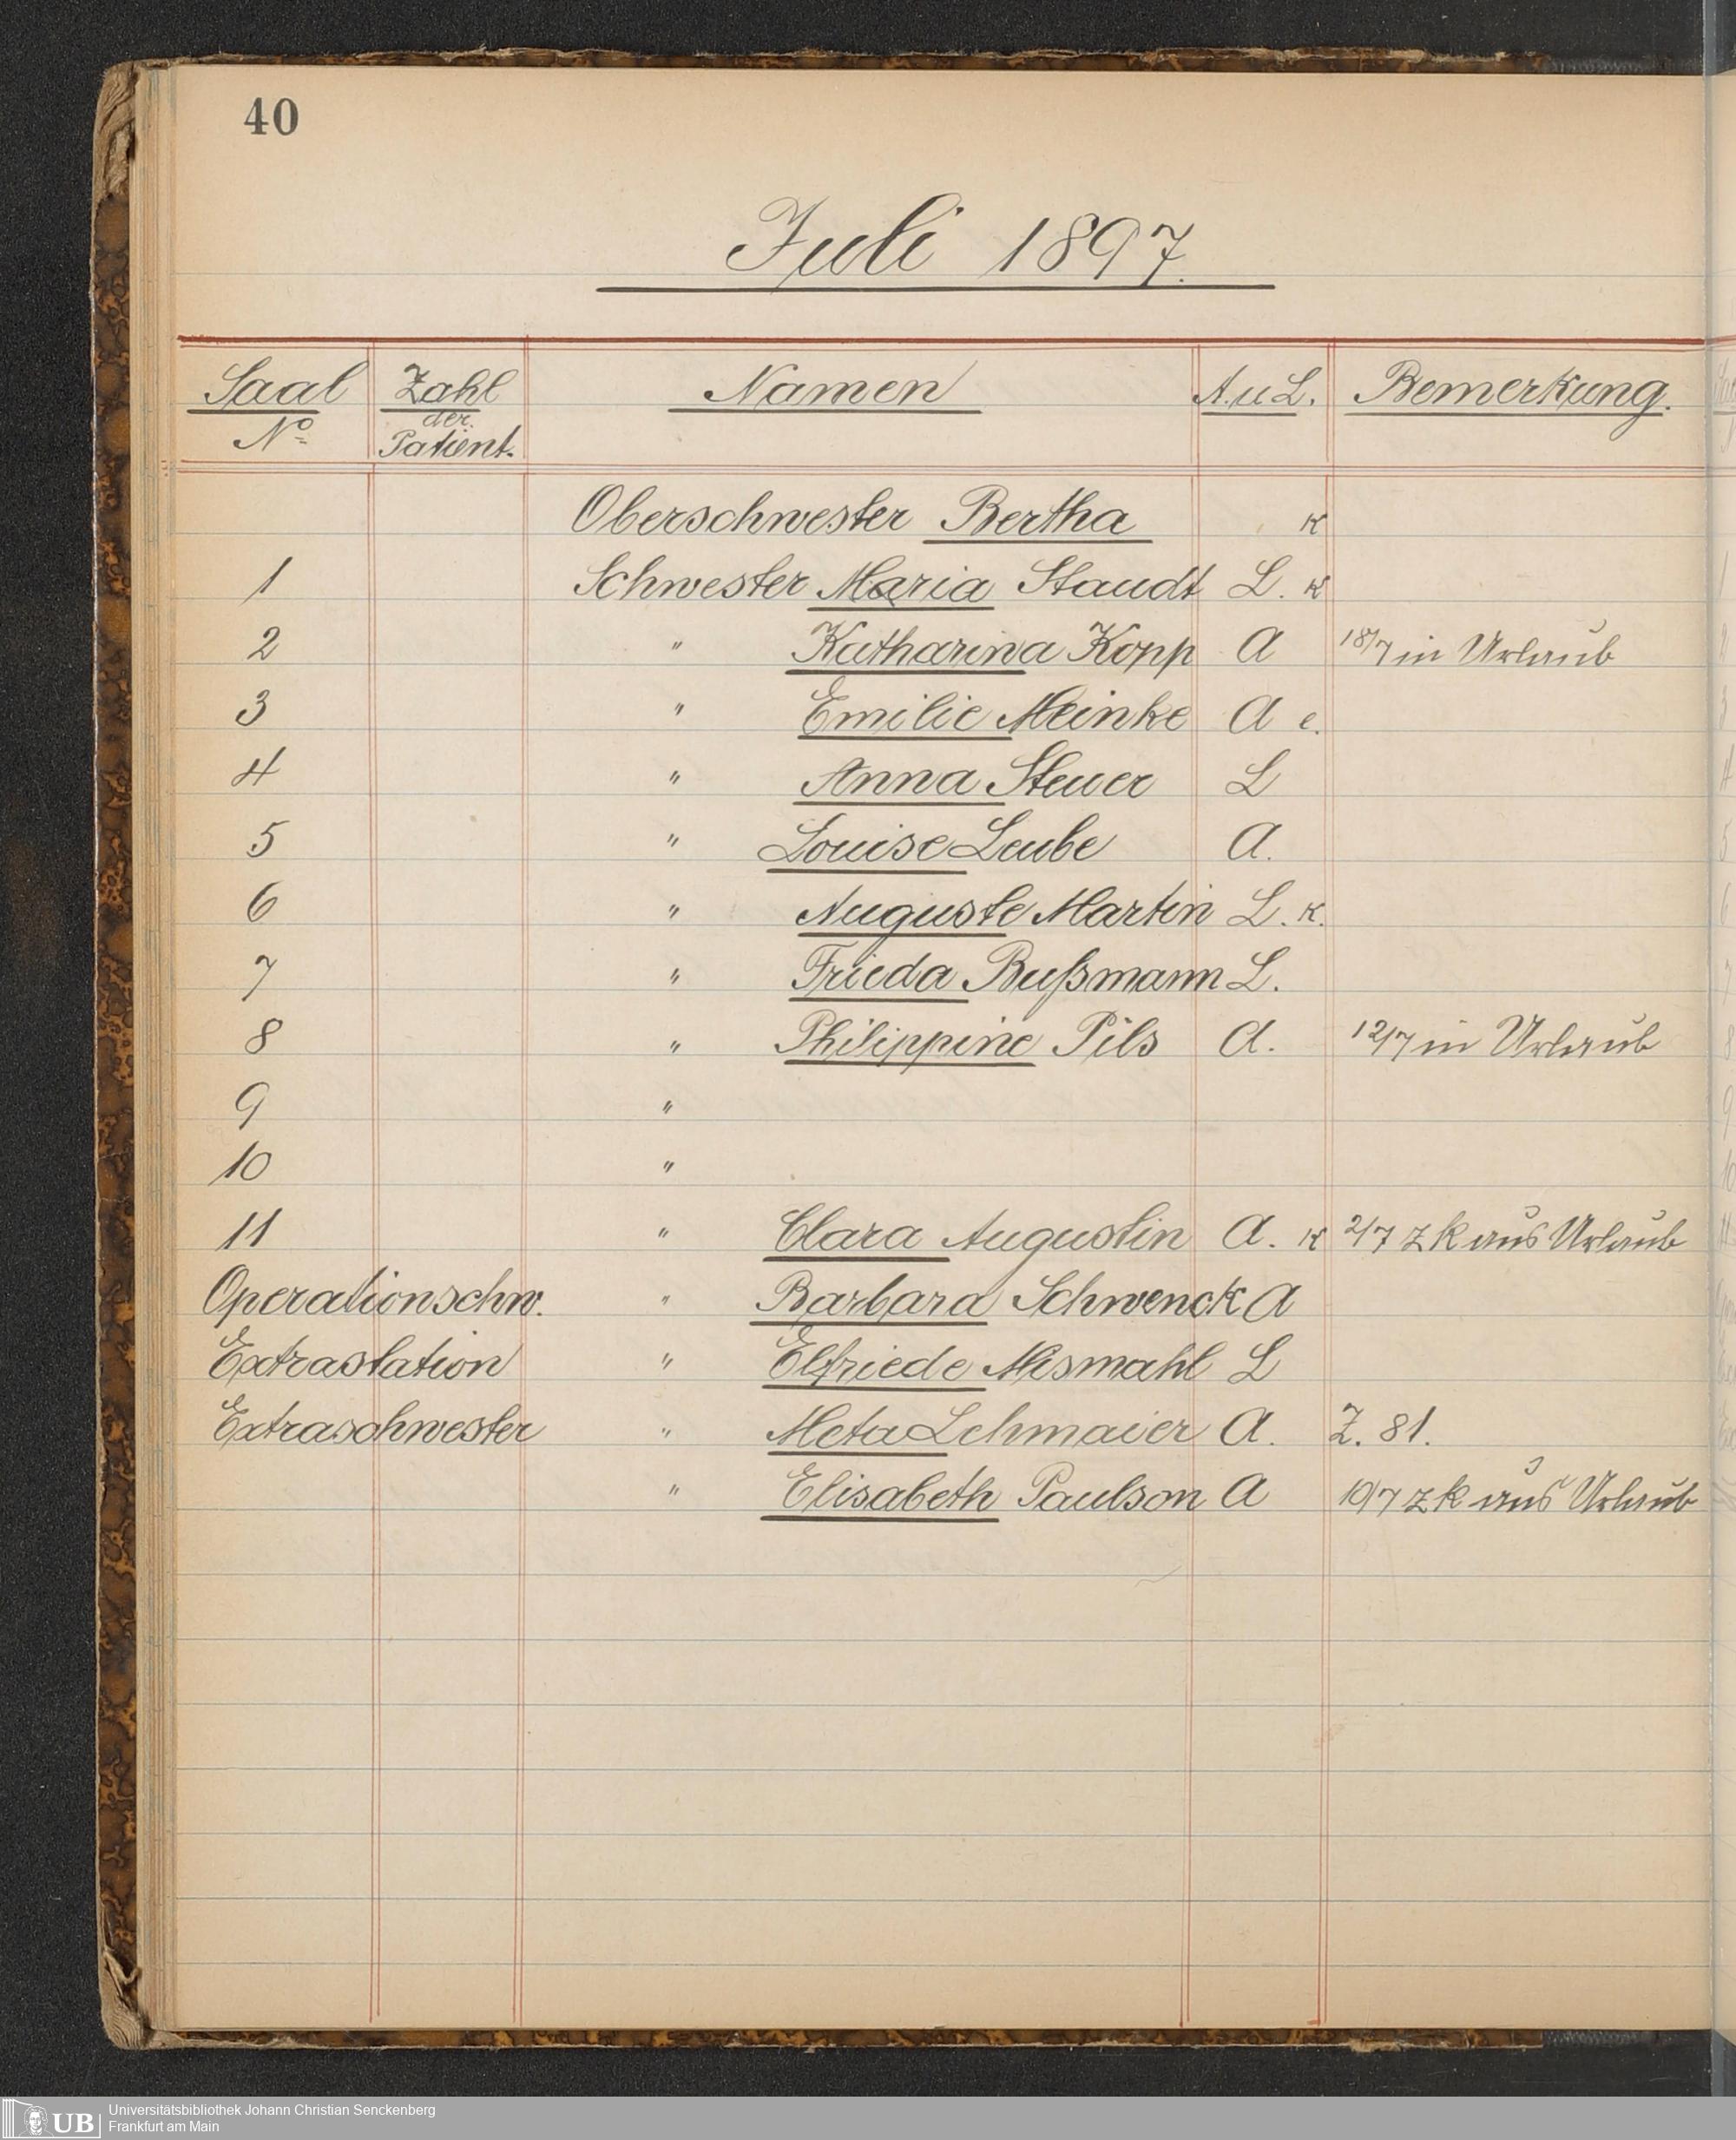 40
Juli 1897.
Saal Zahl Namen A. u L. Bemerkung.
No der
Patient.
Oberschwester Bertha K
1 Schwester Maria Staudt L. K
2 " Katharina Kopp A 18/7 in Urlaub
3 " Emilie Meinke A e.
4 " Anna Steuer L
5 " Louise Leube A.
6 " Auguste Martin L. K.
7 " Frieda Bußmann L.
8 " Philippine Pils A. 12/7 in Urlaub
9 "
10 "
11 " Clara Augustin A. K 2/7 z k aus Urlaub
Operationschw. " Barbara Schwenck A
Extrastation " Elfriede Mismahl L
Extraschwester " Meta Lehmaier A. Z. 81.
" Elisabeth Paulson A 10/7 z k aus Urlaub
UB Universitätsbibliothek Johann Christian Senckenberg
Frankfurt am Main